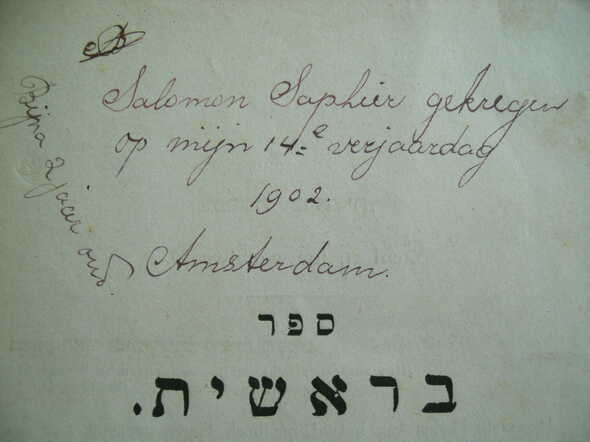 Salomon Saphier gekregen
op mijn 14e verjaardag
1902.
Amsterdam.
Bijna 2 jaar oud.
ספר
בראשית.